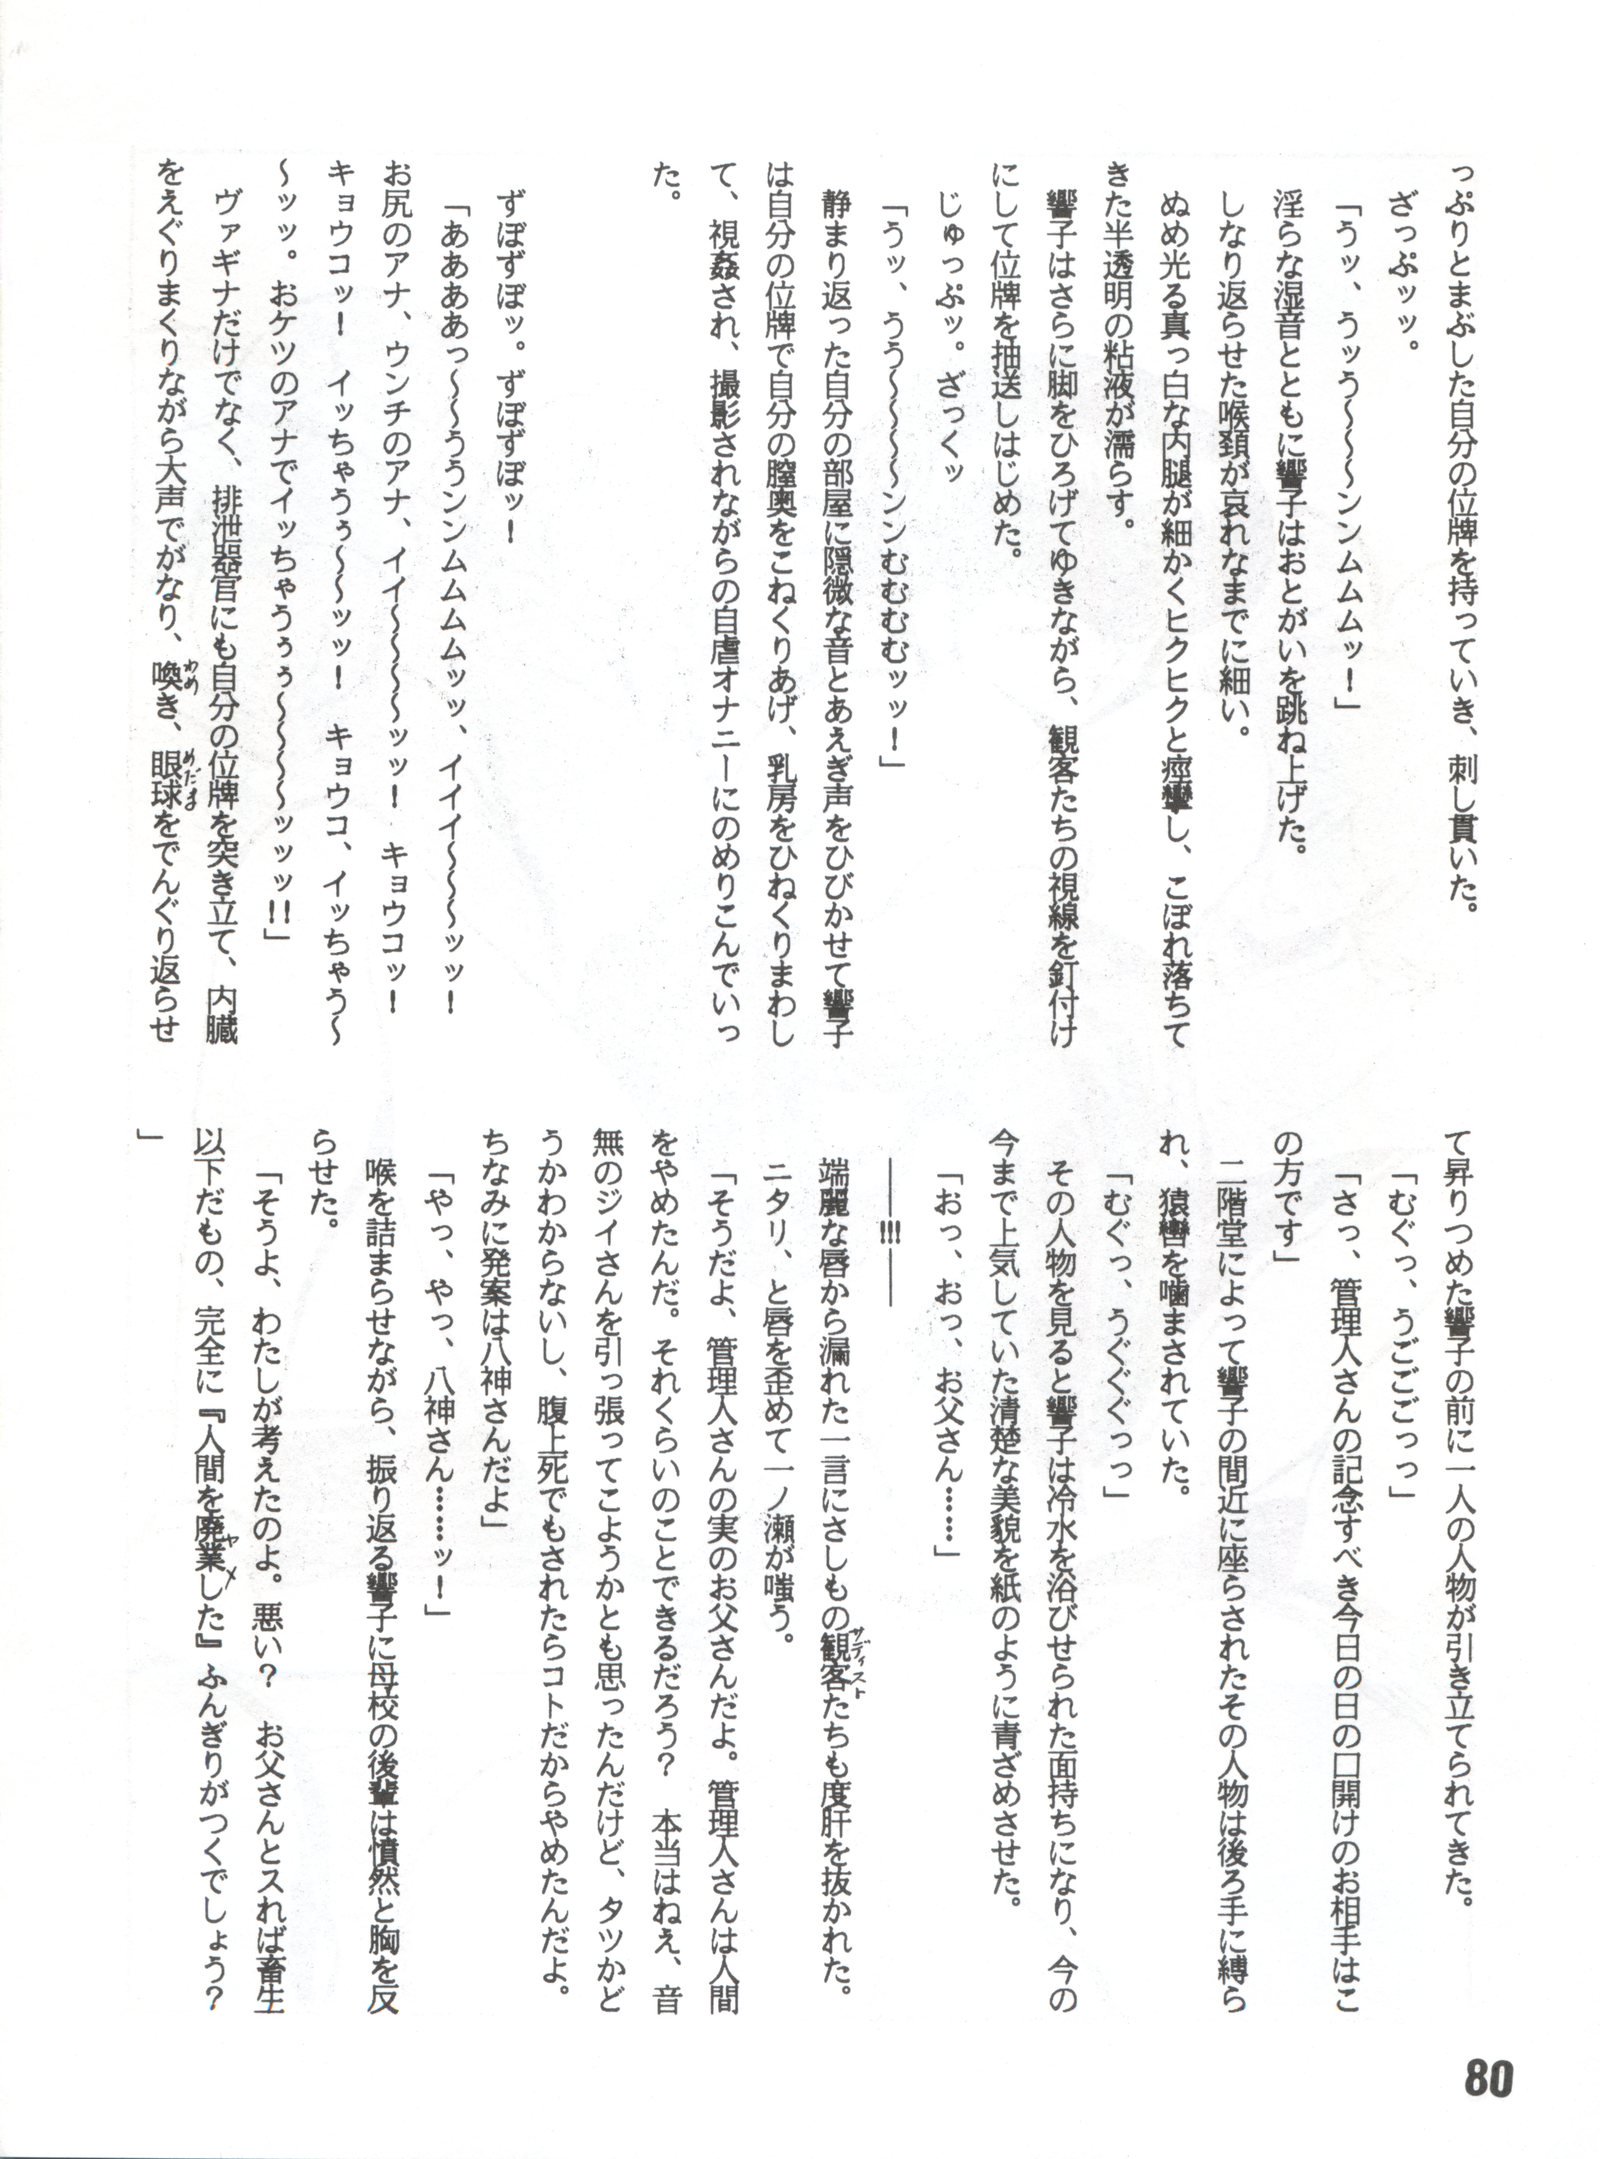 っぷりとまぶした自分の位牌を持っていき、刺し貫いた。
ざっぷッッ。
「うッ、うッう～～～～ンンムムムッ！」
淫らな湿音とともに響子はおとがいを跳ね上げた。
しなり返らせた喉頚が哀れなまでに細い。
ぬめ光る真っ白な内腿が細かくヒクヒクと痙攣し、こぼれ落ちて
きた半透明の粘液が濡らす。
響子はさらに脚をひろげてゆきながら、観客たちの視線を釘付け
にして位牌を抽送しはじめた。
じゅっぷッ。ざっくッ
「うッ、うう～～～～ンンむむむむッッ！」
静まり返った自分の部屋に隠微な音とあえぎ声をひびかせて響子
は自分の位牌で自分の膣奥をこねくりあげ、乳房をひねくりまわし
て、視姦され、撮影されながらの自虐オナニーにのめりこんでいっ
た。
ずぼずぼッ。ずぼずぼッ！
「ああああっ～～ううンンムムムムッッ、イイイ～～～ッッ！
お尻のアナ、ウンチのアナ、イイ～～～～ッッ！ キョウコッ！
キョウコッ！ イッちゃうぅ～～ッッ！ キョウコ、イッちゃう～
～ッッ。おケツのアナでイッちゃうぅぅ～～～～ッッッ!!」
ヴァギナだけでなく、排泄器官にも自分の位牌を突き立て、内臓
をえぐりまくりながら大声でがなり、喚き、眼球をでんぐり返らせ
わめ
めだま
て昇りつめた響子の前に一人の人物が引き立てられてきた。
「むぐっ、うごごごっっ」
「さっ、管理人さんの記念すべき今日の日の口開けのお相手はこ
の方です」
二階堂によって響子の間近に座らされたその人物は後ろ手に縛ら
れ、猿轡を噛まされていた。
「むぐっ、うぐぐぐっっ」
その人物を見ると響子は冷水を浴びせられた面持ちになり、今の
今まで上気していた清楚な美貌を紙のように青ざめさせた。
「おっ、おっ、お父さん……」
――!!!――
端麗な唇から漏れた一言にさしもの観客たちも度肝を抜かれた。
サディスト
ニタリ、と唇を歪めて一ノ瀬が嗤う。
「そうだよ、管理人さんの実のお父さんだよ。管理人さんは人間
をやめたんだ。それくらいのことできるだろう？ 本当はねえ、音
無のジイさんを引っ張ってこようかとも思ったんだけど、タツかど
うかわからないし、腹上死でもされたらコトだからやめたんだよ。
ちなみに発案は八神さんだよ」
「やっ、やっ、八神さん……ッ！」
喉を詰まらせながら、振り返る響子に母校の後輩は憤然と胸を反
らせた。
「そうよ、わたしが考えたのよ。悪い？ お父さんとスれば畜生
以下だもの、完全に『人間を廃業した』ふんぎりがつくでしょう？
ヤメ
」
80